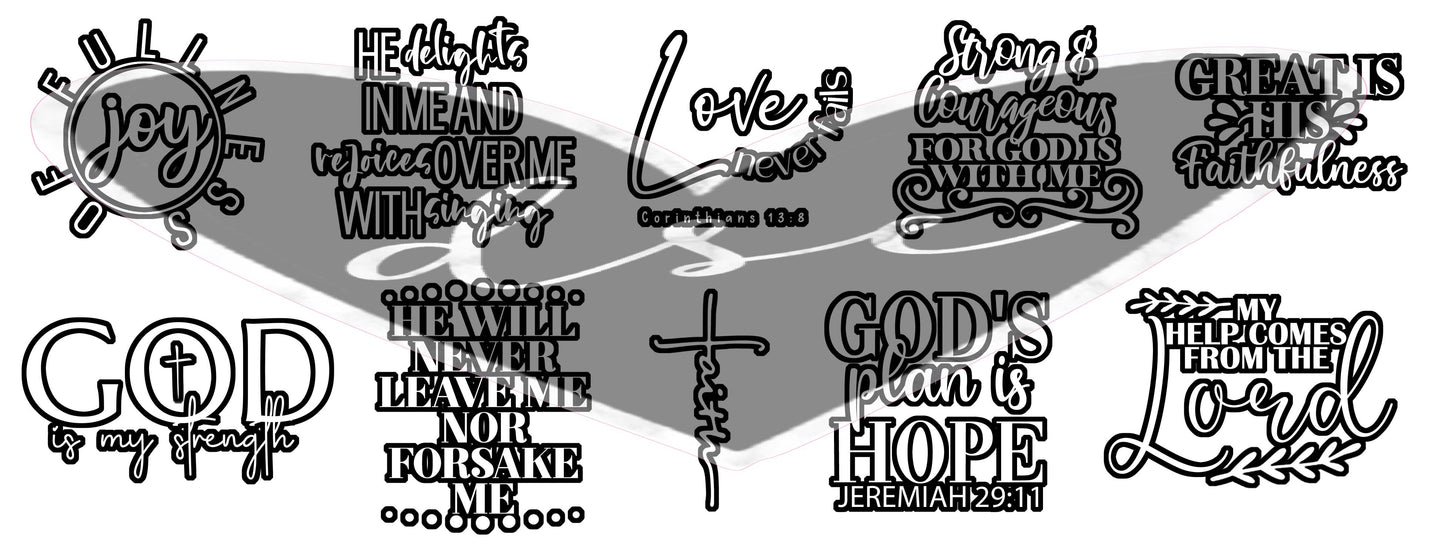 FULLNESS OF
joy
HE delights
IN ME AND
rejoices OVER ME
WITH singing
Love
never fails
Corinthians 13:8
Strong &
Courageous
FOR GOD IS
WITH ME
GREAT IS
HIS
Faithfulness
GOD
is my strength
HE WILL
NEVER
LEAVE ME
NOR
FORSAKE
ME
faith
GOD'S
plan is
HOPE
JEREMIAH 29:11
MY
HELP COMES
FROM THE
Lord